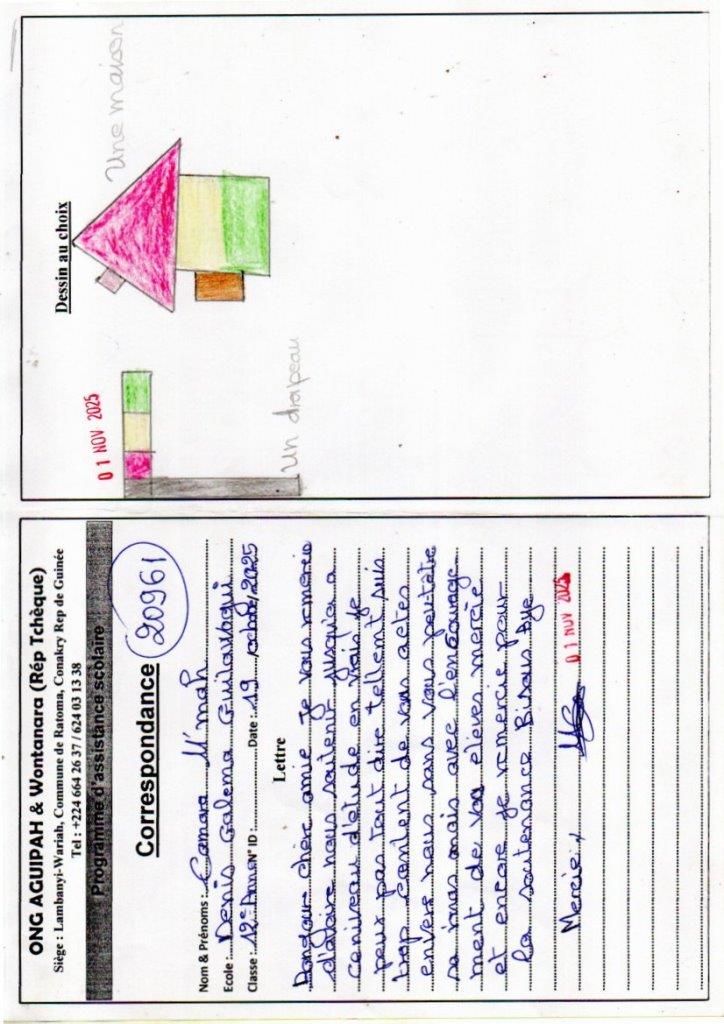 ONG AGUIPAH & Wontanara (Rép Tchèque)
Siège : Lambanyi-Wariah, Commune de Ratoma, Conakry Rep de Guinée
Tel : +224 664 26 37 / 624 03 13 38
Programme d'assistance scolaire
Correspondance 20961
Nom & Prénoms : Camara M'mah
Ecole : Denis Galema Guilavogui
Classe : 12e Année N° ID : Date : 19 octobre 2025
Lettre
Bonjour chère amie je vous remercie
d'avoire nous soutenir jusqu'à a
ce niveau d'étude en vrais je
peux pas tout dire tellement suis
trop content de vous actes
envere nous sans vous peut-être
sa ira mais avec l'encourage
ment de vos élèves mercie
et encore je remercie pour
la soutenance Bisous Bye
Mercie!
01 NOV 2025
Dessin au choix
01 NOV 2025
Une maison
Un drapeau